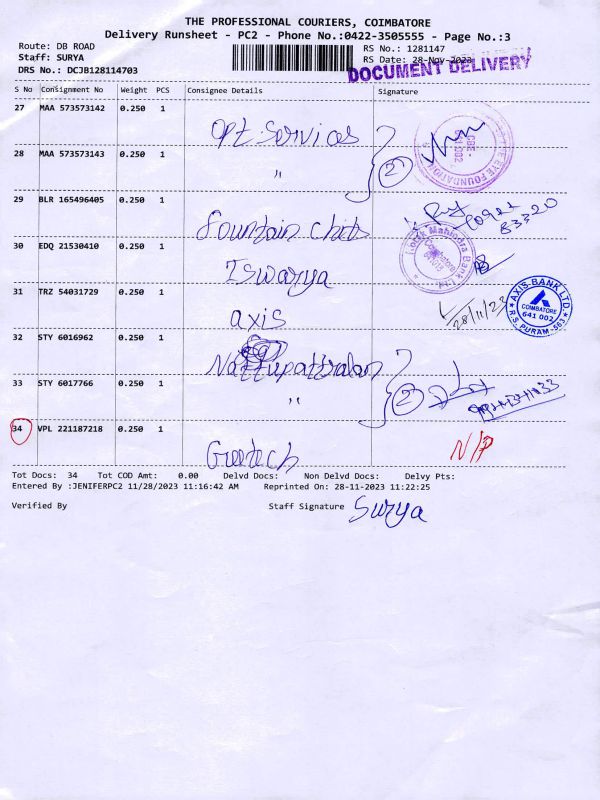 THE PROFESSIONAL COURIERS, COIMBATORE
Delivery Runsheet - PC2 - Phone No.:0422-3505555 - Page No.:3
Route: DB ROAD
RS No.: 1281147
Staff: SURYA
RS Date: 28-Nov-2023
DRS No.: DCJB128114703
DOCUMENT DELIVERY
S No Consignment No Weight PCS Consignee Details Signature
27 MAA 573573142 0.250 1
Opt. Services
28 MAA 573573143 0.250 1
" 2
EYE FOUNDATION
CBE-
641 002
29 BLR 165496405 0.250 1
Fountain Chits
83320
30 EDQ 21530410 0.250 1
Iswarya
Kotak Mahindra Bank Ltd.
Coimbatore
31 TRZ 54031729 0.250 1
axis
28/11/23
AXIS BANK LTD.
COIMBATORE
641 002
R.S. PURAM-563
32 STY 6016962 0.250 1
33 STY 6017766 0.250 1
" 2
34 VPL 221187218 0.250 1
Greetech
N/P
Tot Docs: 34 Tot COD Amt: 0.00 Delvd Docs: Non Delvd Docs: Delvy Pts:
Entered By :JENIFERPC2 11/28/2023 11:16:42 AM Reprinted On: 28-11-2023 11:22:25
Verified By Staff Signature Surya